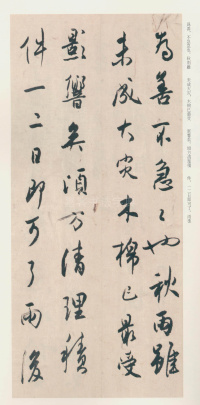 为善不急之也秋雨雖
未成大灾木棉已最受
影響矣須方清理積
件一二日即可了雨後